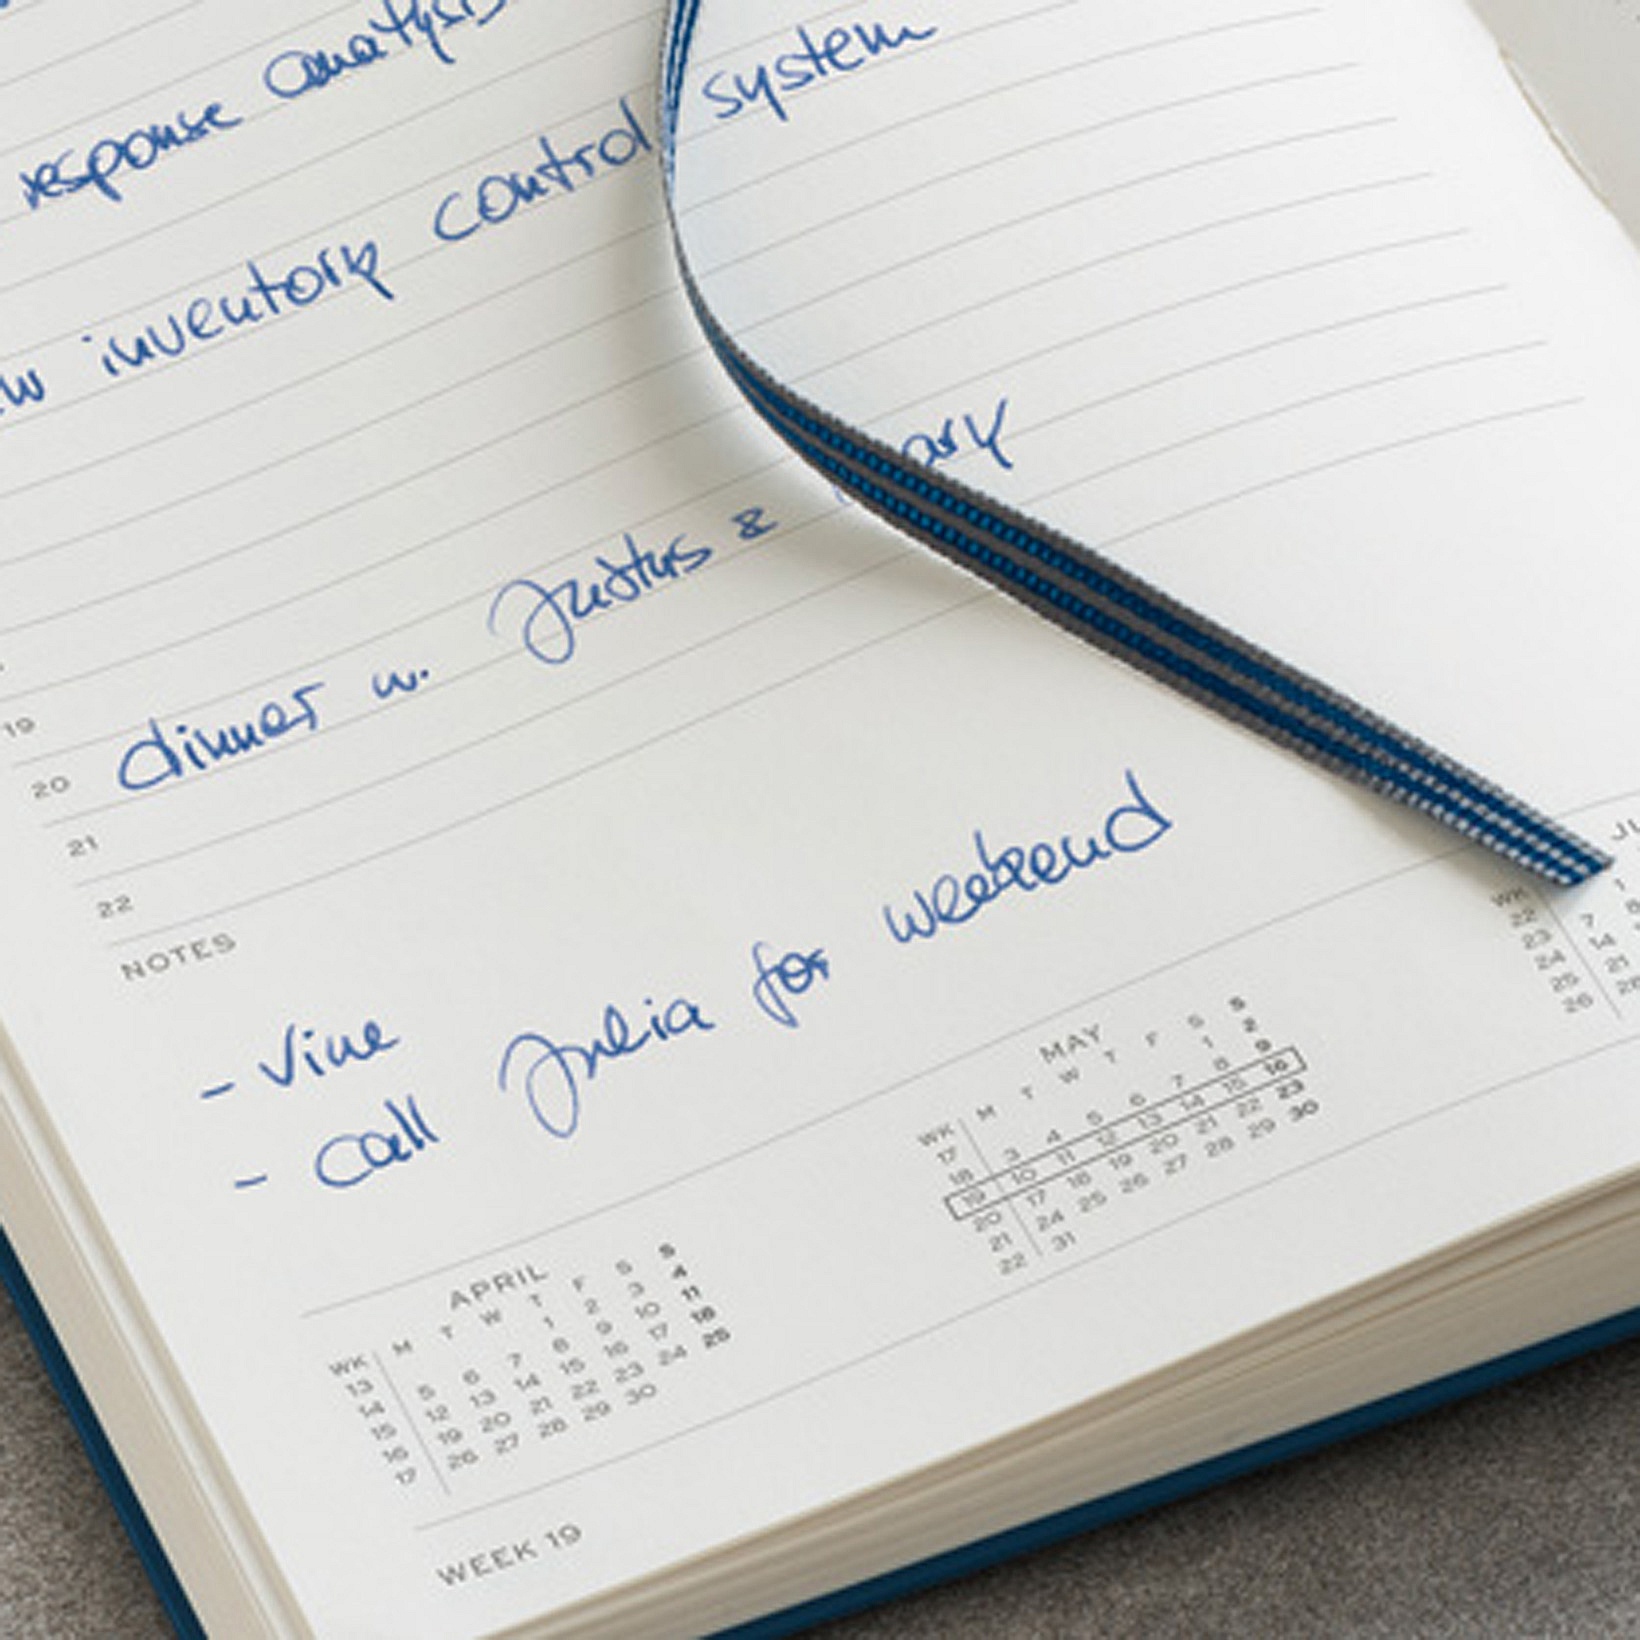 response analysis
inventory control system
19
20 dinner w. Justus &
21
22
NOTES
- Vine
- call Julia for weekend
APRIL
WK M T W T F S S
13 1 2 3 4
14 5 6 7 8 9 10 11
15 12 13 14 15 16 17 18
16 19 20 21 22 23 24 25
17 26 27 28 29 30
MAY
WK M T W T F S S
17 1 2
18 3 4 5 6 7 8 9
19 10 11 12 13 14 15 16
20 17 18 19 20 21 22 23
21 24 25 26 27 28 29 30
22 31
WK
22 1
23 7 8
24 14
25 21
26 28
WEEK 19